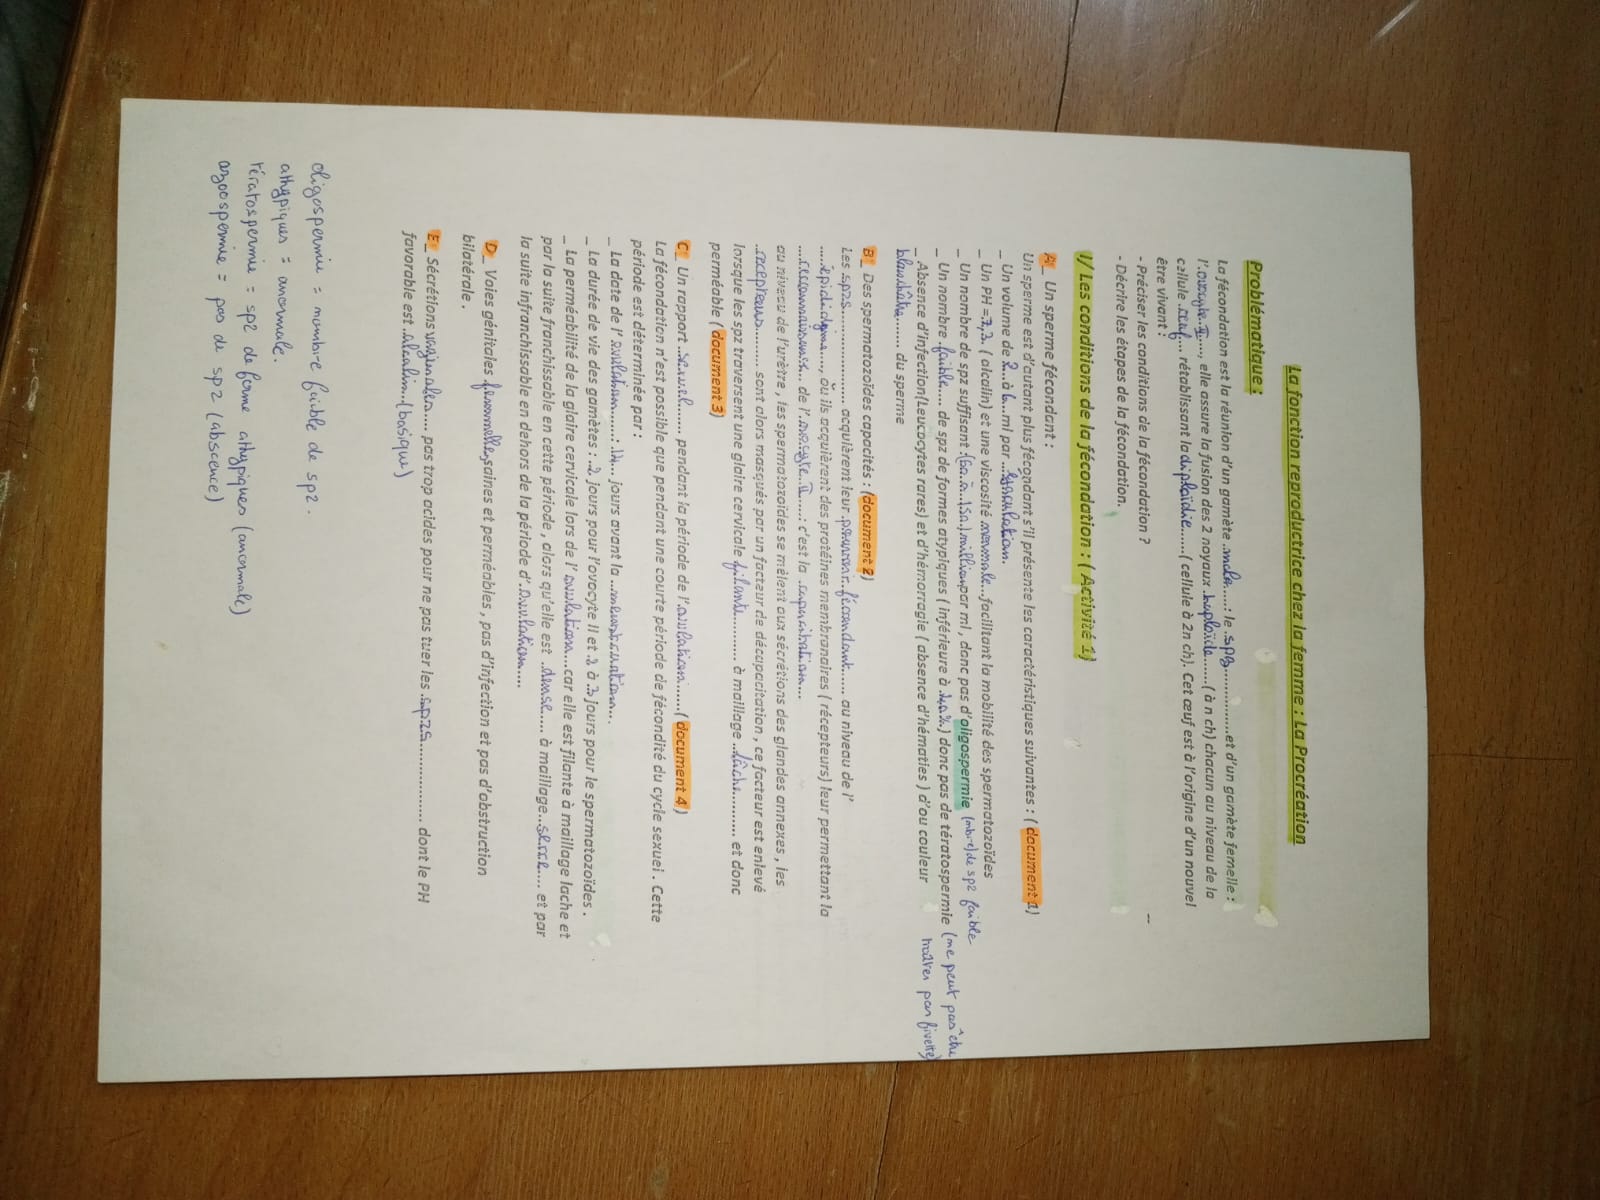 La fonction reproductrice chez la femme : La Procréation
Problématique :
La fécondation est la réunion d'un gamète .mâle.....: le .spz...............et d'un gamète femelle :
l'.ovocyte II....., elle assure la fusion des 2 noyaux .haploïde......( à n ch) chacun au niveau de la
cellule .œuf.... rétablissant la diploïdie......( cellule à 2n ch). Cet œuf est à l'origine d'un nouvel
être vivant :
- Préciser les conditions de la fécondation ?
- Décrire les étapes de la fécondation.
I/ Les conditions de la fécondation : ( Activité 1)
A_ Un sperme fécondant :
Un sperme est d'autant plus fécondant s'il présente les caractéristiques suivantes : ( document 1)
_ Un volume de 2...à 6...ml par ..éjaculation.
_ Un PH =.7,3. ( alcalin) et une viscosité normale...facilitant la mobilité des spermatozoïdes
_ Un nombre de spz suffisant :(60 à 150) million par ml , donc pas d'oligospermie (mbre) de spz faible
_ Un nombre .faible.... de spz de formes atypiques ( inférieure à .40%.) donc pas de tératospermie (ne peut pas être
_ Absence d'infection(Leucocytes rares) et d'hémorragie ( absence d'hématies ) d'ou couleur par fivette)
blanchâtre....... du sperme
B_ Des spermatozoïdes capacités : (document 2)
Les spzs................... acquièrent leur pouvoir fécondant...... au niveau de l'
....épididyme...., où ils acquièrent des protéines membranaires ( récepteurs) leur permettant la
...reconnaissance... de l'.ovocyte II....: c'est la .capacitation...
au niveau de l'urètre , les spermatozoïdes se mêlent aux sécrétions des glandes annexes , les
.recepteurs......... sont alors masqués par un facteur de décapacitation , ce facteur est enlevé
lorsque les spz traversent une glaire cervicale filante.......... à maillage ..lâche.......... et donc
perméable ( document 3)
C_ Un rapport ..sexuel....... pendant la période de l'.ovulation......( document 4 )
La fécondation n'est possible que pendant une courte période de fécondité du cycle sexuel . Cette
période est déterminée par :
_ La date de l' ovulation......: .14... jours avant la ..menstruation...
_ La durée de vie des gamètes : .2 jours pour l'ovocyte II et .2 à 3 jours pour le spermatozoïdes .
_ La perméabilité de la glaire cervicale lors de l' ovulation...car elle est filante à maillage lache et
par la suite franchissable en cette période , alors qu'elle est ..dense..... à maillage..serre.... et par
la suite infranchissable en dehors de la période d'.ovulation....
D_ Voies génitales femmelles saines et perméables , pas d'infection et pas d'obstruction
bilatérale .
E_ Sécrétions vaginales.... pas trop acides pour ne pas tuer les .spzs................. dont le PH
favorable est .alcalin...(basique)
oligospermie = nombre faible de spz.
athypiques = anormale.
tératospermie = spz de forme athypiques (anormale)
azoospermie = pas de spz (abscence)